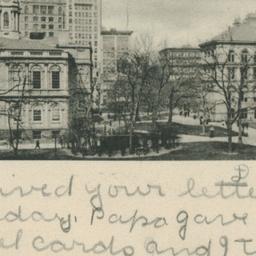 ived your lette
day. Papa gave
al cards and I t